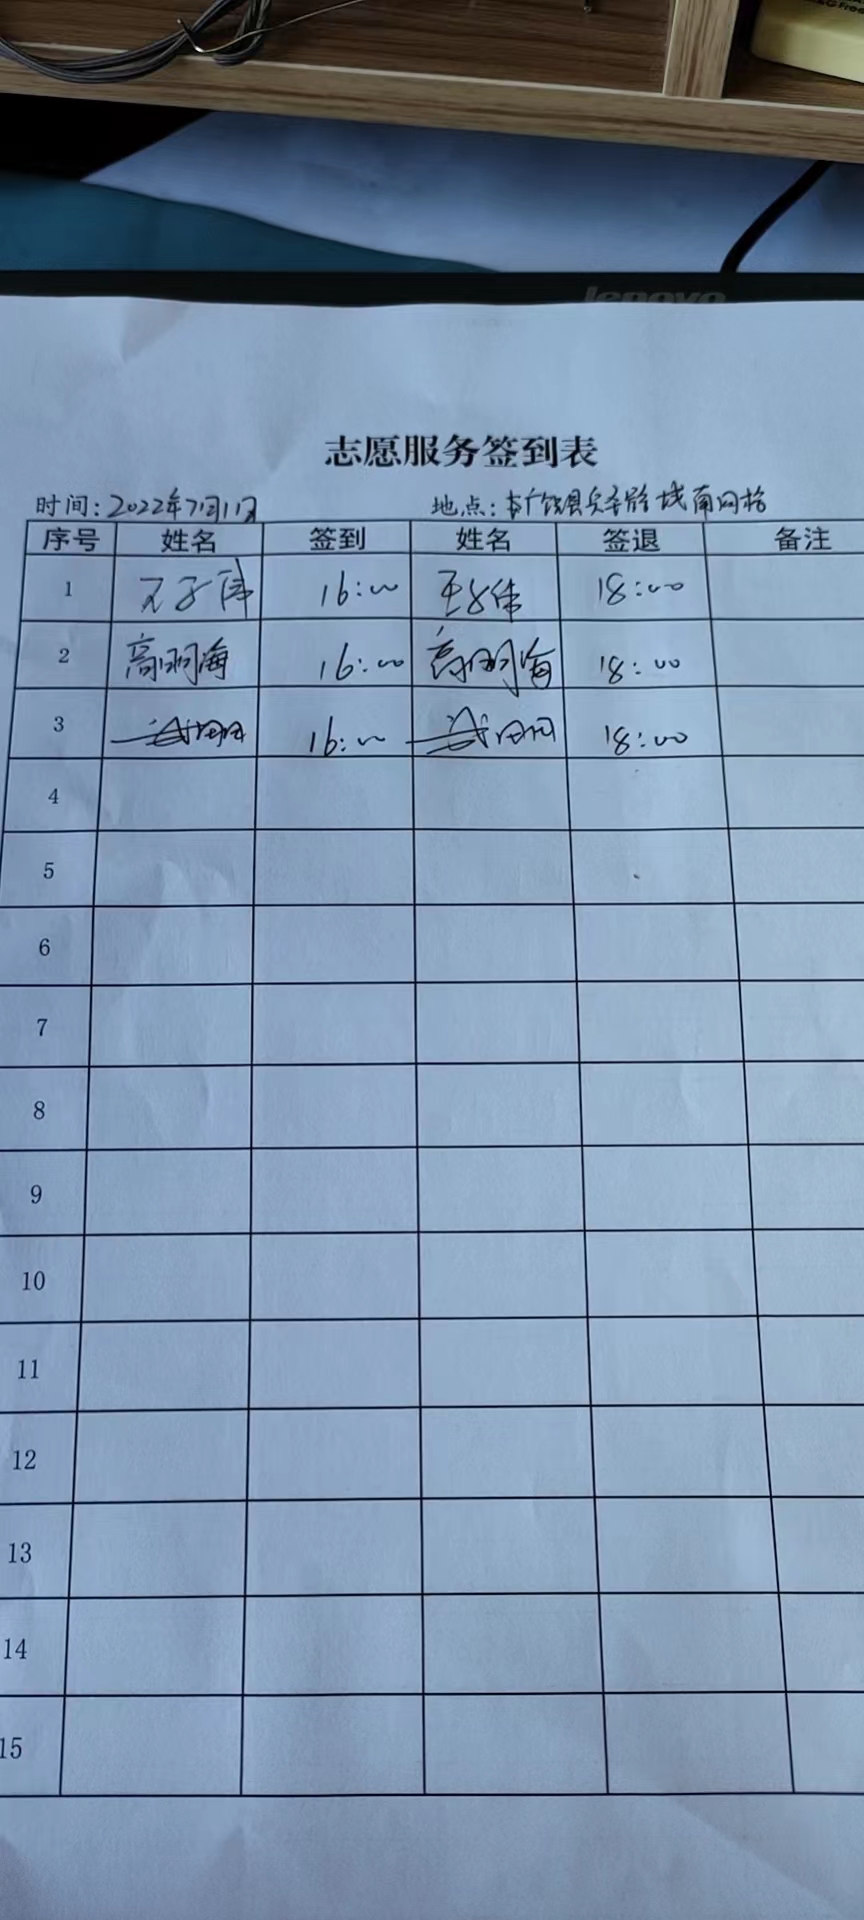 G Free
lenovo
志愿服务签到表
时间:2022年7月11日 地点:广饶县 城南网格
序号 姓名 签到 姓名 签退 备注
1 16:00 18:00
2 高明海 16:00 高明海 18:00
3 16:00 18:00
4
5
6
7
8
9
10
11
12
13
14
15